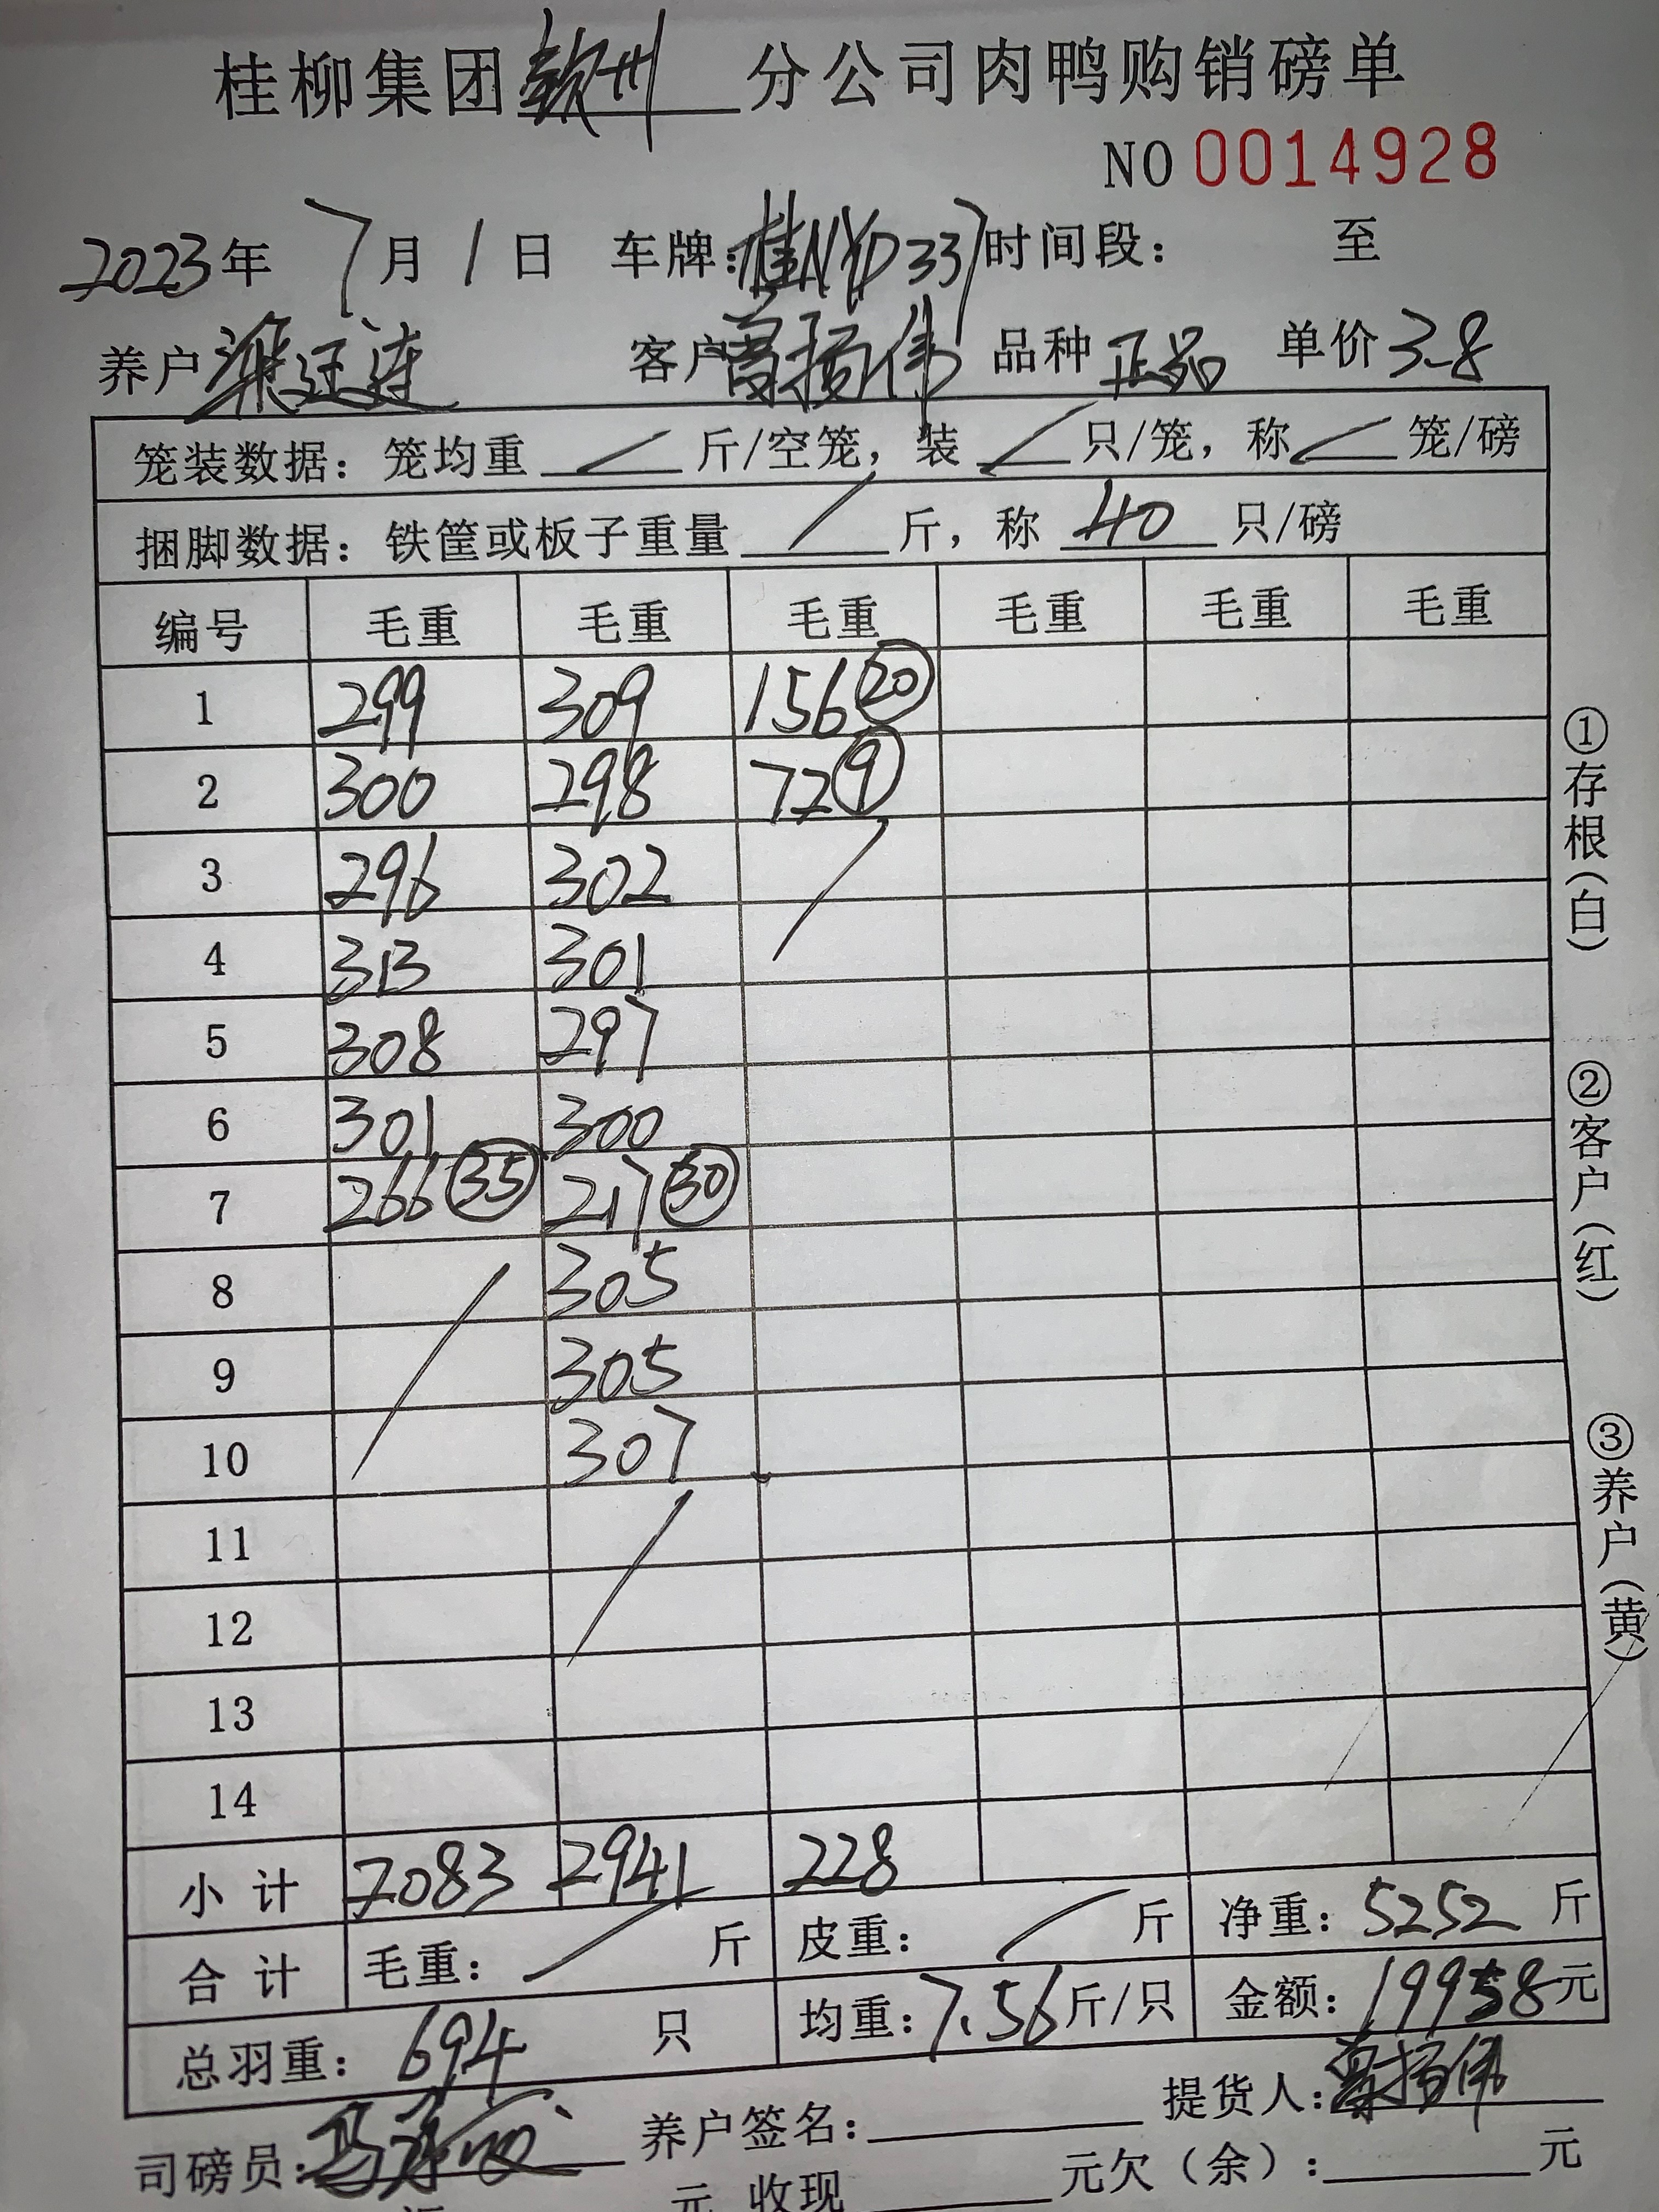 桂柳集团钦州分公司肉鸭购销磅单
NO 0014928
2023年 7月 1日 车牌:桂NYD337 时间段: 至
养户 梁廷连 客户 曾扬伟 品种 正品 单价 3.8
笼装数据: 笼均重 / 斤/空笼, 装 / 只/笼, 称 / 笼/磅
捆脚数据: 铁筐或板子重量 / 斤, 称 40 只/磅
编号 毛重 毛重 毛重 毛重 毛重 毛重
1 299 309 156 20
2 300 298 72 9
3 296 302
4 313 301
5 308 297
6 301 300
7 266 35 217 30
8 305
9 305
10 307
11
12
13
14
小计 2083 2941 228
合计 毛重: / 斤 皮重: / 斤 净重: 5252 斤
总羽重: 694 只 均重: 7.56 斤/只 金额: 19958 元
司磅员: 养户签名: 提货人: 曾扬伟
元 收现 元欠(余): 元
①存根(白)
②客户(红)
③养户(黄)